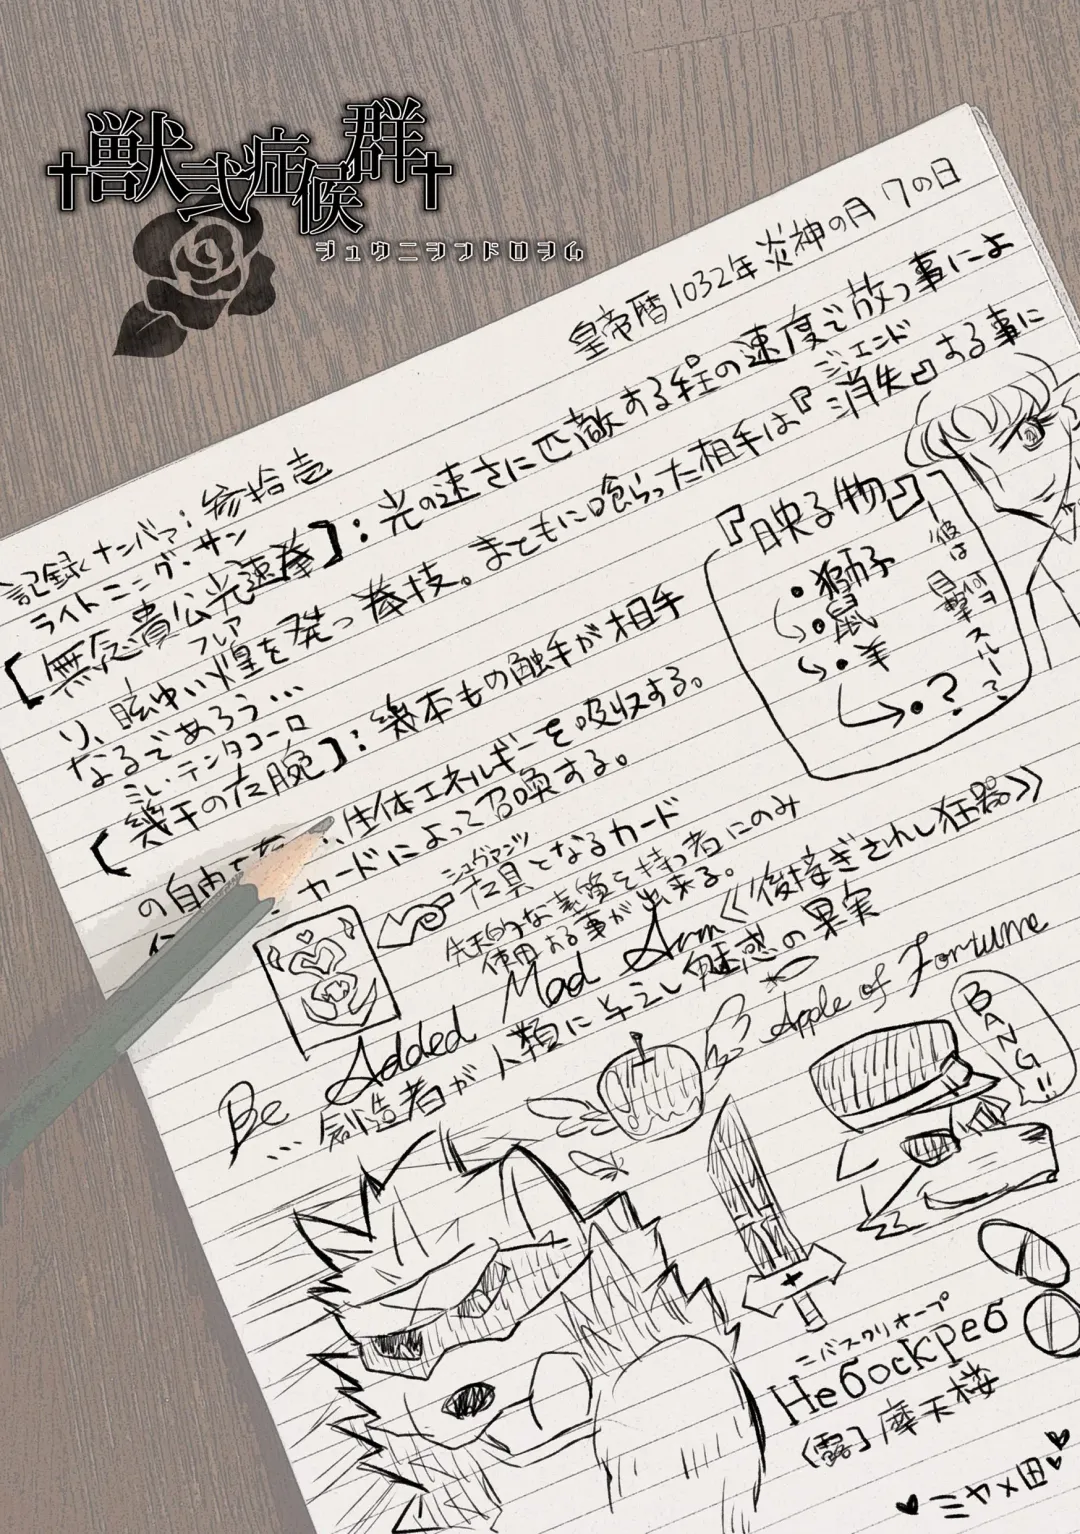 †獣弐症候群†
ジュウニシンドロヲム
皇帝暦1032年炎神の月7の日
記録ナンバァ:参拾壱
ライトニング・サン
【無念貴公光速拳】:光の速さに匹敵する程の速度で放つ事によ
フレア
り、眩ゆい煌を発つ拳技。まともに喰らった相手は『消失』する事に
ジエンド
なるであろう…
ミレ・テンタコーロ
【幾千の左腕】:幾本もの触手が相手
の自由を
生体エネルギーを吸収する。
カードによって召喚する。
『映る物』
・獅子
・鼠
・羊
・?
彼は
何ヲ
目撃
スルー?
シュヴァンツ
左具となるカード
先天的な素質を持つ者にのみ
使用する事が出来る。
Be Added Mad Arm《後接ぎされし狂器》
…創造者が人類に与えし魅惑の果実
Apple of Fortume
BANG!!
ニバスクリオープ
Небоскреб
〔露〕摩天楼
ミヤメ田